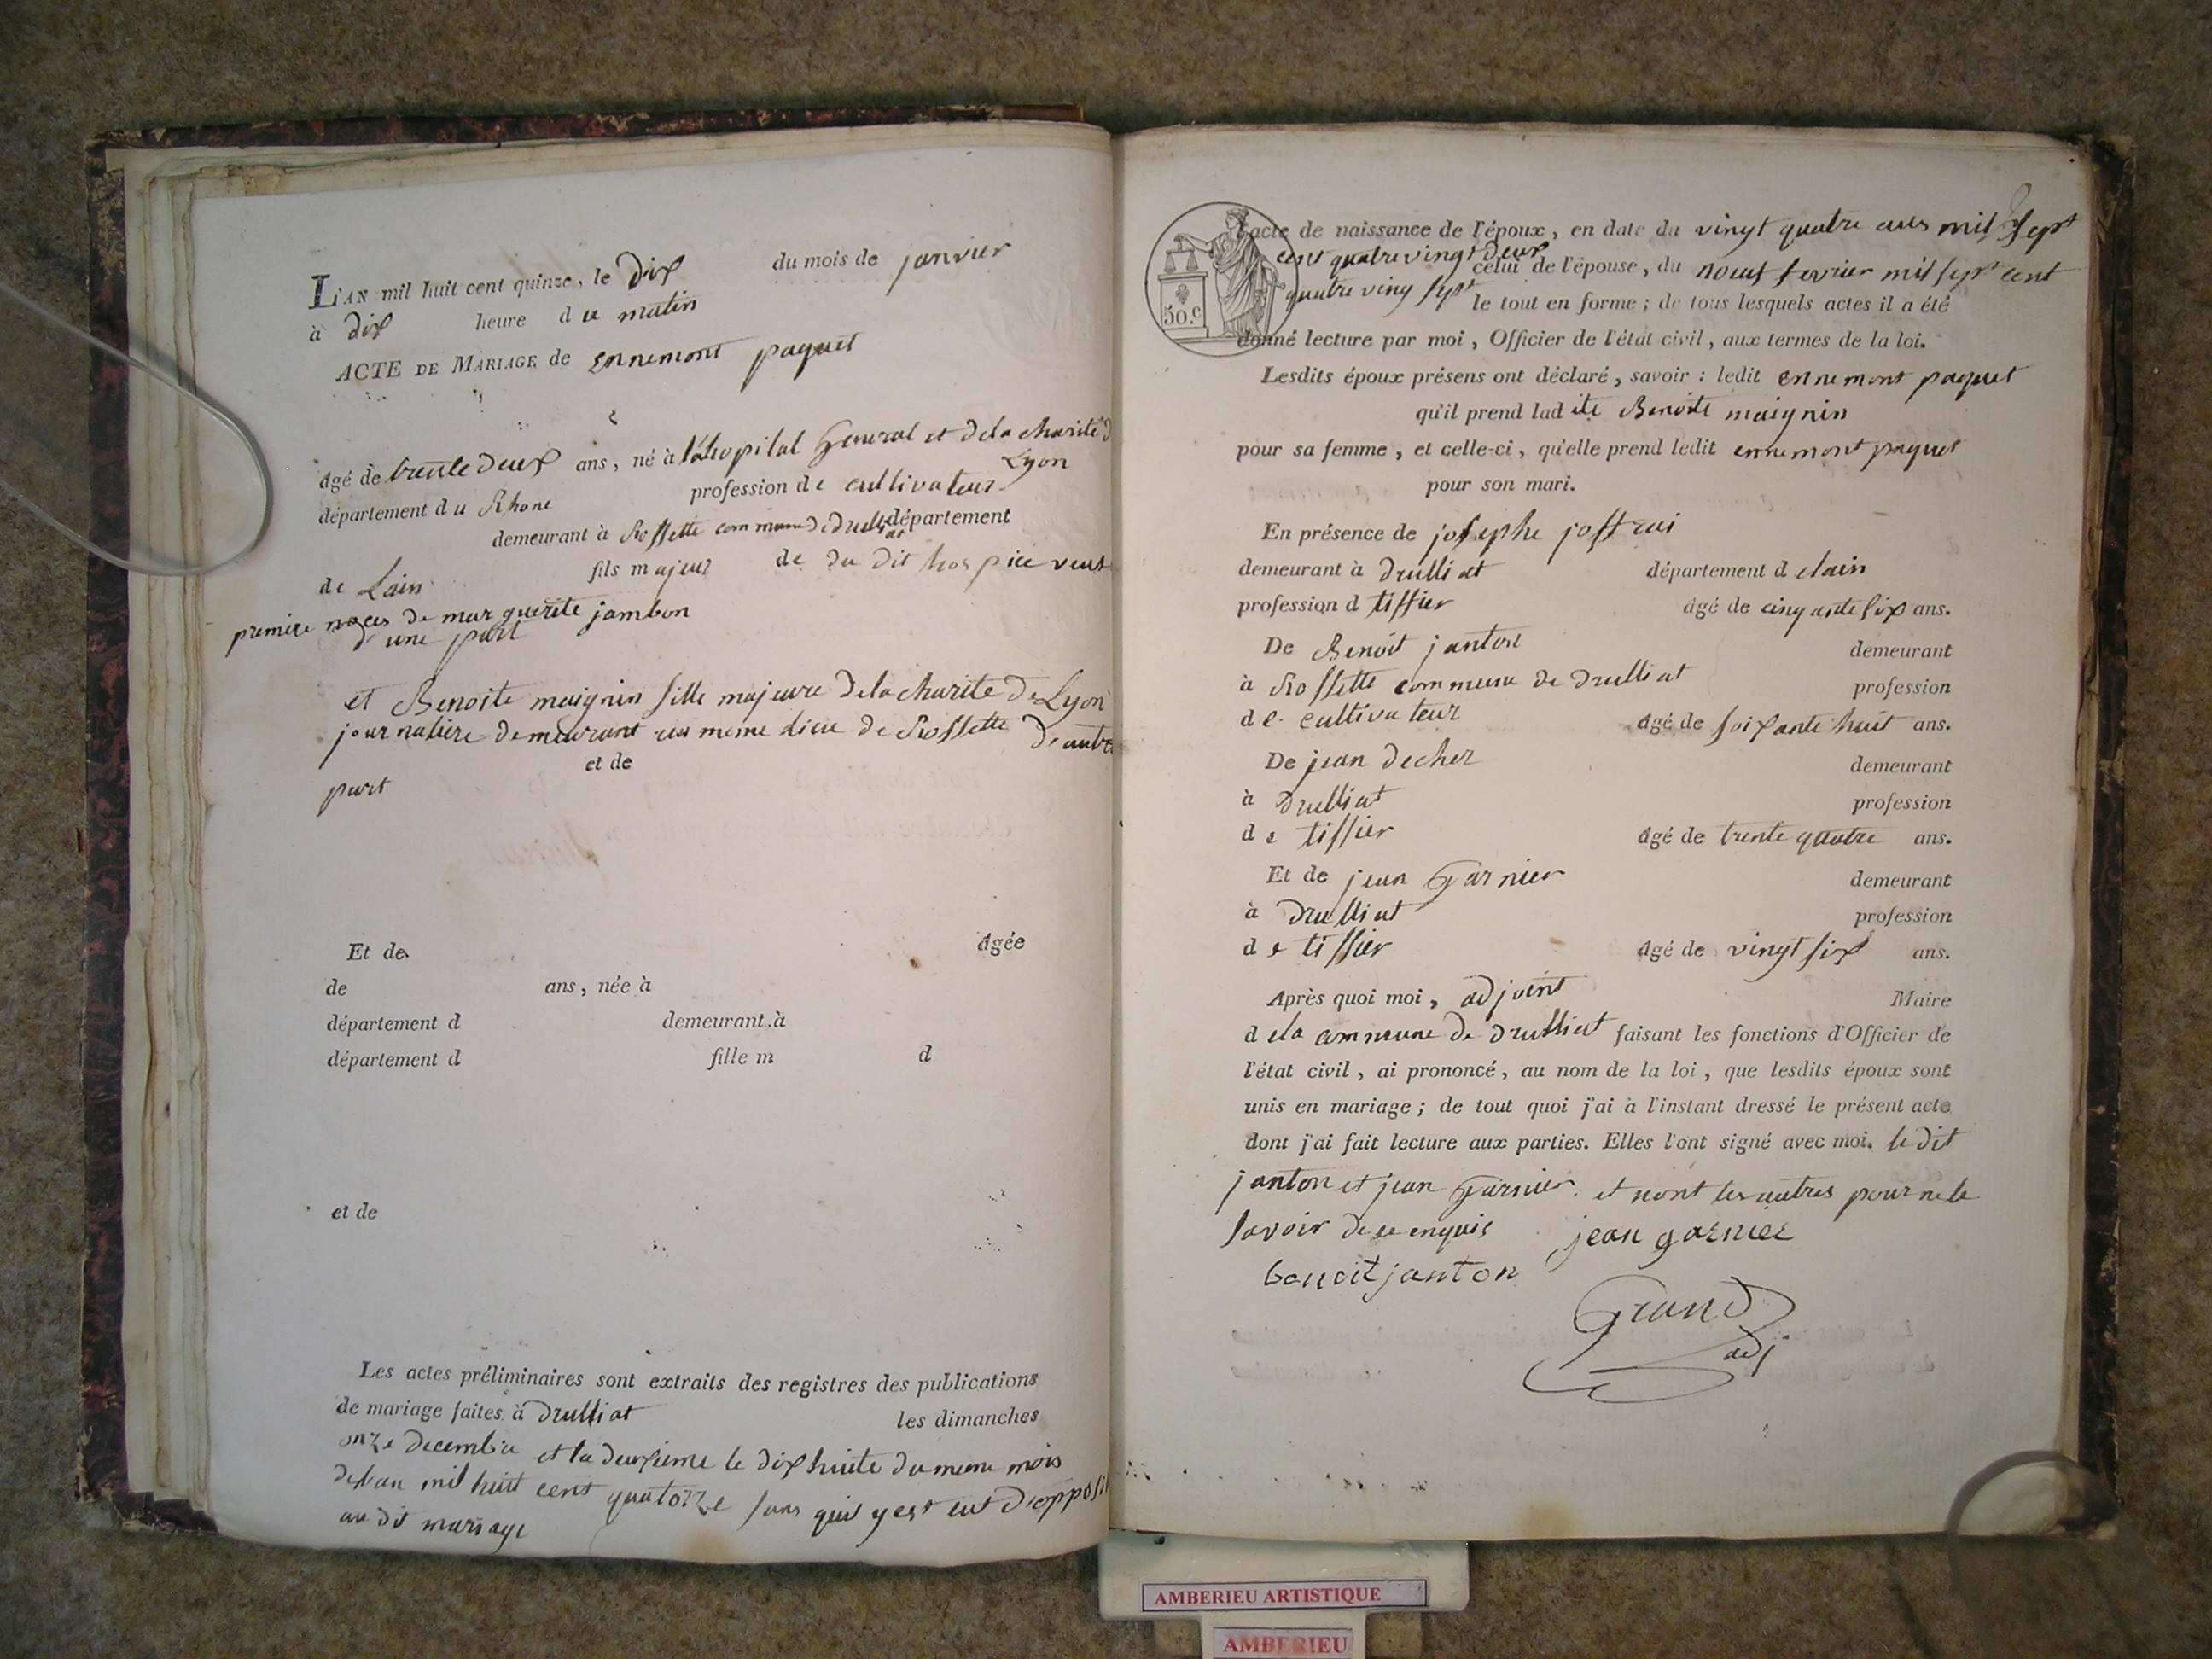 L'AN mil huit cent quinze, le dix du mois de janvier
à dix heure du matin
ACTE DE MARIAGE de ennemont paquet
âgé de trente deux ans, né à l'hopital general et dela charité d
Lyon
département du Rhone profession de cultivateur
demeurant à Rossette commune de drulliat département
de Lain fils majeur de du dit hospice veuf
premiere noces de marguerite jambon
d'une part
et Benoite maignin fille majeure dela charite de Lyon
journaliere demeurant au meme lieu de Rossette d'autre
et de
part
Et de âgée
de ans, née à
département d demeurant à
département d fille m d
et de
Les actes préliminaires sont extraits des registres des publications
de mariage faites à drulliat les dimanches
onze decembre et la deuxieme le dix huite du meme mois
delan mil huit cent quatorze sans quil y est eut d'opposi
au dit mariage
l'acte de naissance de l'époux, en date du vingt quatre mil sept
cent quatre vingt deux celui de l'épouse, du neuf fevrier mil sept cent
quatre ving sept le tout en forme; de tous lesquels actes il a été
50.c
donné lecture par moi, Officier de l'état civil, aux termes de la loi.
Lesdits époux présens ont déclaré, savoir: ledit ennemont paquet
qu'il prend ladite Benoite maignin
pour sa femme, et celle-ci, qu'elle prend ledit ennemont paquet
pour son mari.
En présence de josephe joffrai
demeurant à drulliat département delain
profession d tissier âgé de cinquante six ans.
De Benoit janton demeurant
à Rossette commune de drulliat profession
de cultivateur âgé de soixante huit ans.
De jean decher demeurant
à drulliat profession
de tissier âgé de trente quatre ans.
Et de jean Garnier demeurant
à drulliat profession
de tissier âgé de vingt six ans.
Après quoi moi, adjoint Maire
dela commune de drulliat faisant les fonctions d'Officier de
l'état civil, ai prononcé, au nom de la loi, que lesdits époux sont
unis en mariage; de tout quoi j'ai à l'instant dressé le présent acte
dont j'ai fait lecture aux parties. Elles l'ont signé avec moi. le dit
janton et jean Garnier et nont les autres pour ne le
savoir de ce enquis jean garnier
benoit janton
Grand
adj
AMBERIEU ARTISTIQUE
AMBERIEU